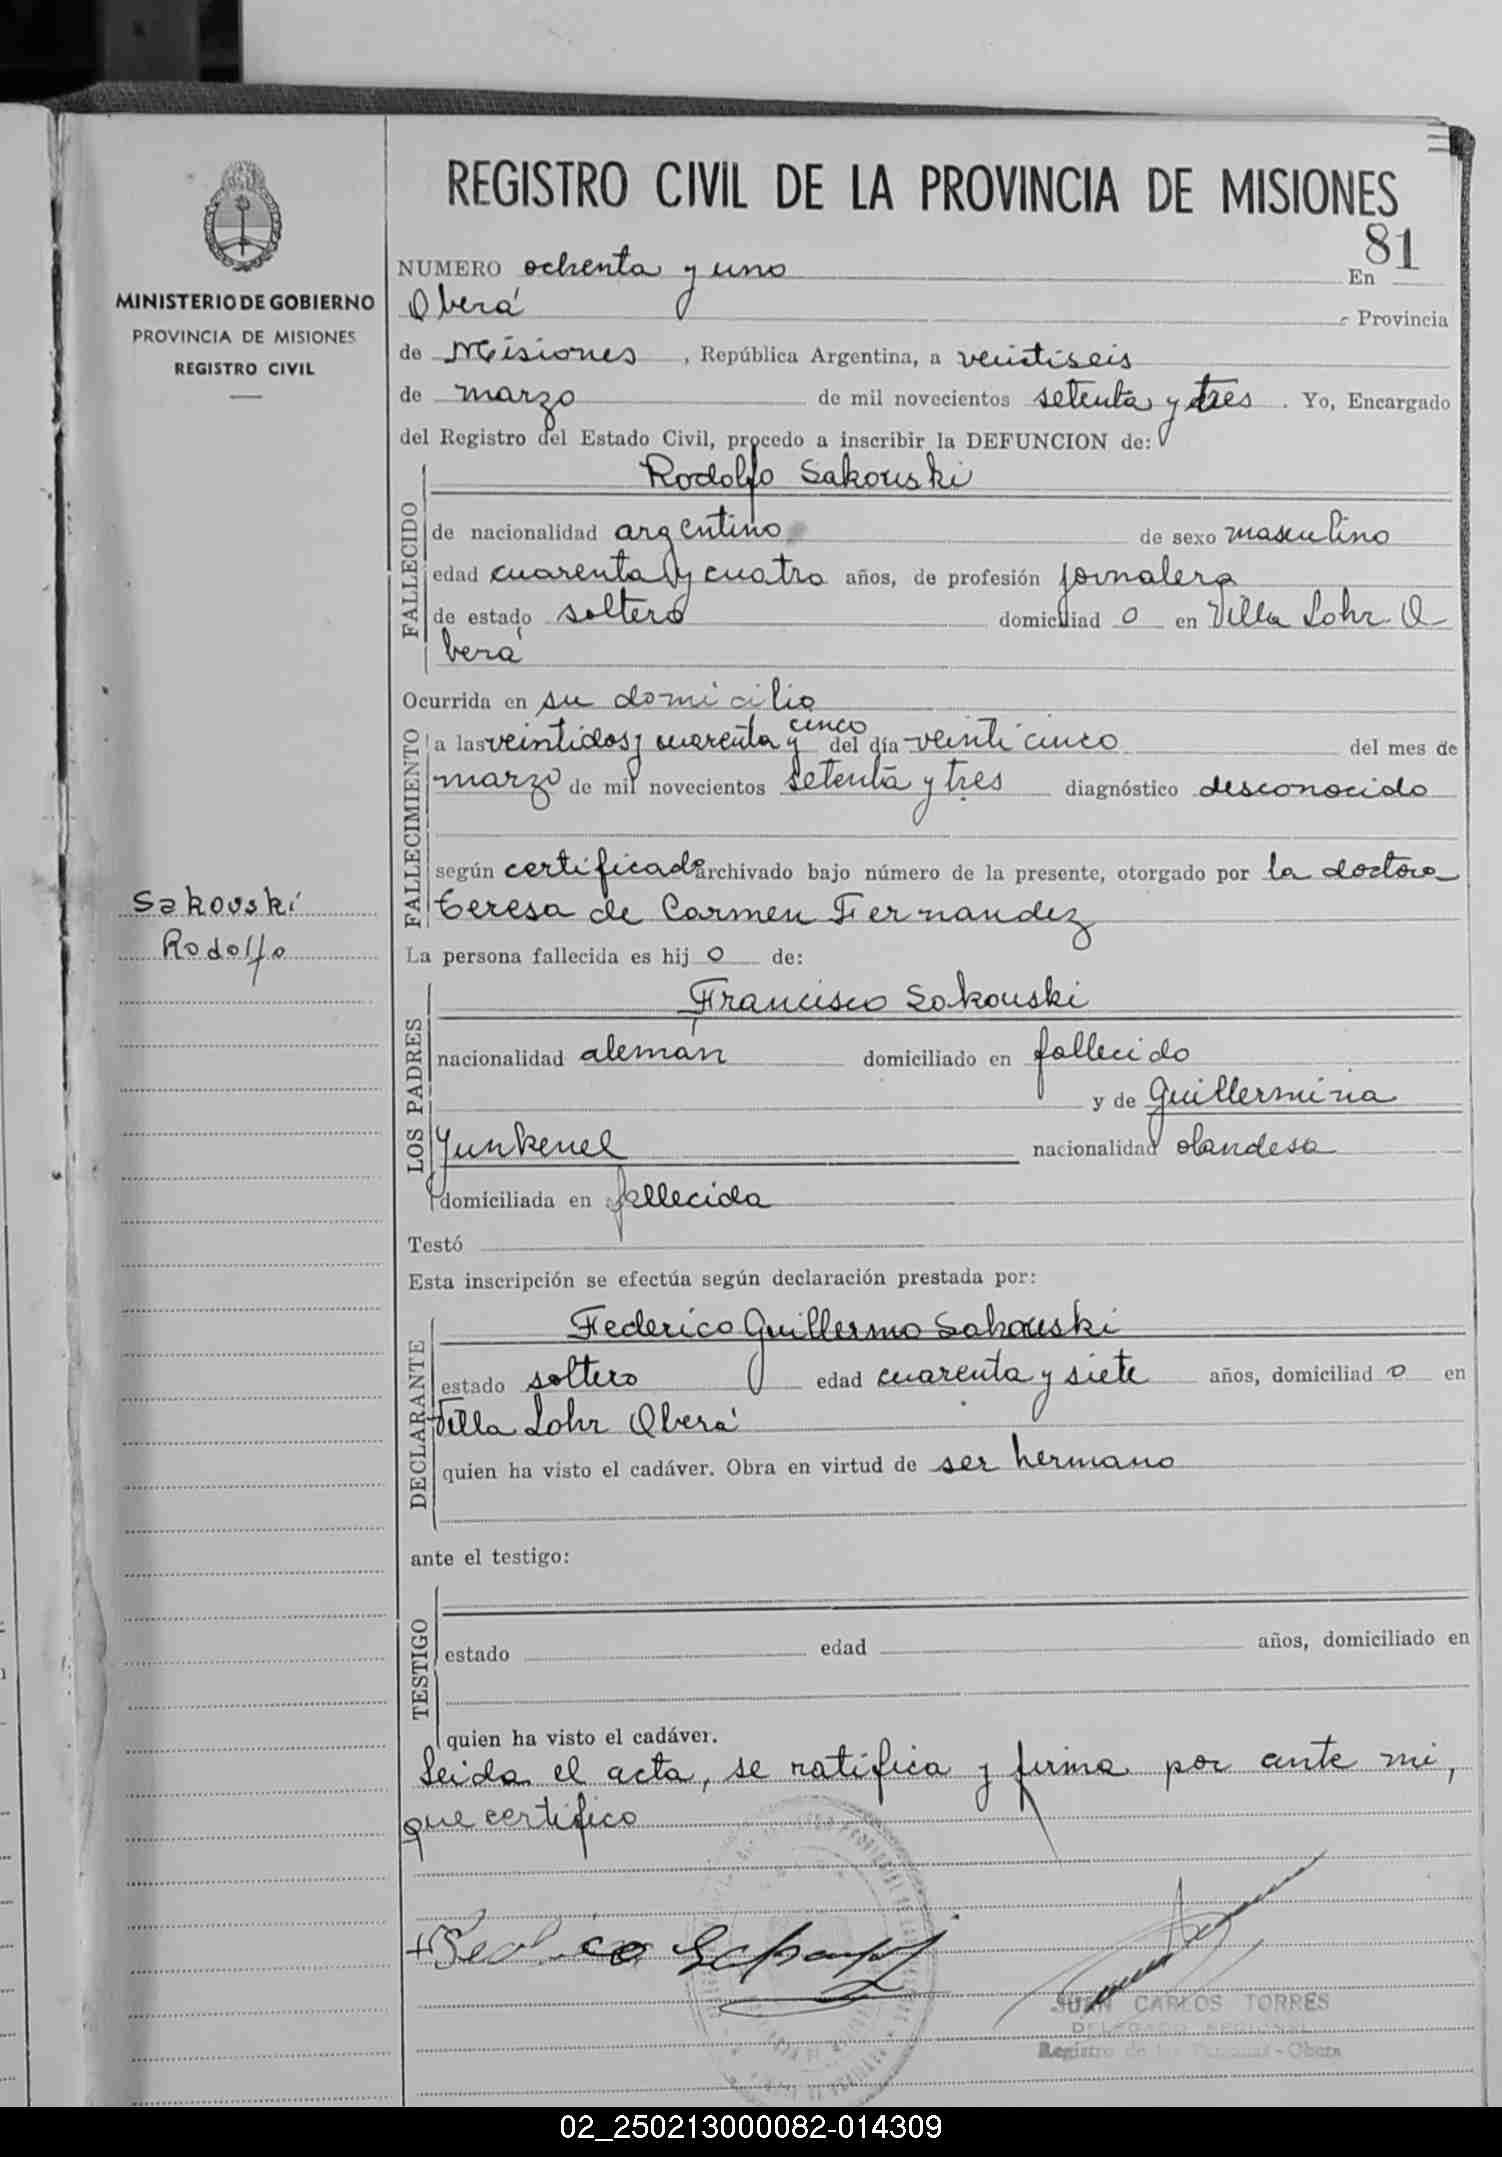 REGISTRO CIVIL DE LA PROVINCIA DE MISIONES
81
MINISTERIO DE GOBIERNO
PROVINCIA DE MISIONES
REGISTRO CIVIL
NUMERO ochenta y uno En
Oberá - Provincia
de Misiones, República Argentina, a veintiseis
de marzo de mil novecientos setenta y tres. Yo, Encargado
del Registro del Estado Civil, procedo a inscribir la DEFUNCION de:
Rodolfo Sakouski
FALLECIDO
de nacionalidad argentino de sexo masculino
edad cuarenta y cuatro años, de profesión jornalero
de estado soltero domiciliad o en Villa Lohr O
berá
Ocurrida en su domicilio
FALLECIMIENTO
a las veintidos y cuarenta y cinco del día veinticinco del mes de
marzo de mil novecientos setenta y tres diagnóstico desconocido
según certificado archivado bajo número de la presente, otorgado por la doctora
Teresa de Carmen Fernandez
Sakouski
Rodolfo
La persona fallecida es hij o de:
LOS PADRES
Francisco Sokouski
nacionalidad alemán domiciliado en fallecido
y de Guillermina
Yunkenel nacionalidad olandesa
domiciliada en fallecida
Testó
Esta inscripción se efectúa según declaración prestada por:
DECLARANTE
Federico Guillermo Sakouski
estado soltero edad cuarenta y siete años, domiciliad o en
Villa Lohr Oberá
quien ha visto el cadáver. Obra en virtud de ser hermano
ante el testigo:
TESTIGO
estado edad años, domiciliado en
quien ha visto el cadáver.
Leida el acta, se ratifica y firma por ante mi,
que certifico
JUAN CARLOS TORRES
DELEGADO REGIONAL
Registro de las Personas - Obera
02_250213000082-014309